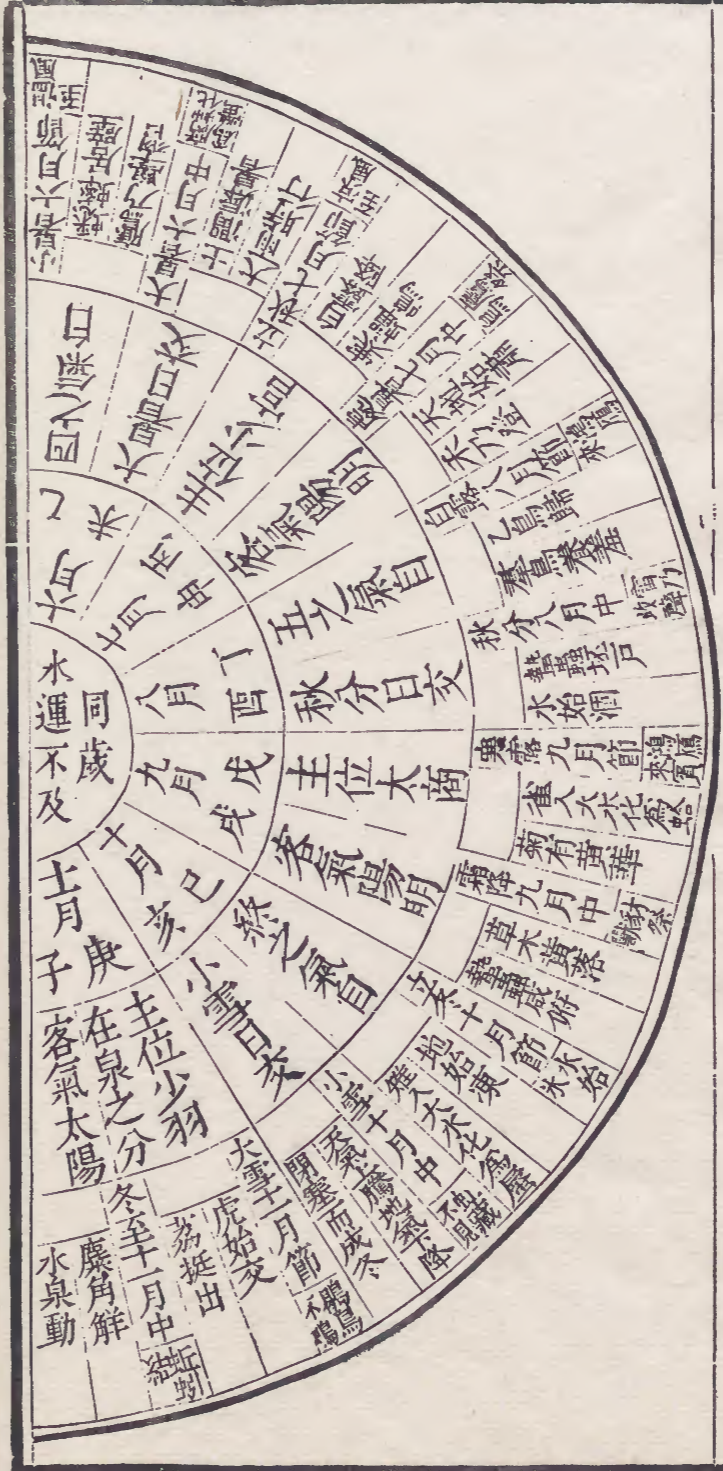 同歲
水運不及
六月
乙未
七月
丙申
八月
丁酉
九月
戊戌
十月
己亥
十一月
庚子
四之氣自
大暑日交
主位少宮
客氣陽明
五之氣自
秋分日交
主位太商
客氣陽明
終之氣自
小雪日交
主位少羽
在泉之分
客氣太陽
小暑六月節
溫風至
蟋蟀居壁
鷹乃學習
大暑六月中
腐草化為螢
土潤溽暑
大雨時行
立秋七月節
涼風至
白露降
寒蟬鳴
處暑七月中
鷹祭鳥
天地始肅
禾乃登
白露八月節
鴻鴈來
乙鳥歸
羣鳥養羞
秋分八月中
雷乃收聲
蟄蟲坯戶
水始涸
寒露九月節
鴻鴈來賓
雀入大水化為蛤
菊有黃華
霜降九月中
豺祭獸
草木黃落
蟄蟲咸俯
立冬十月節
水始冰
地始凍
雉入大水化為蜃
小雪十月中
虹藏不見
天氣上騰地氣下降
閉塞而成冬
大雪十一月節
鶡鳥不鳴
虎始交
荔挺出
冬至十一月中
蚯蚓結
麋角解
水泉動